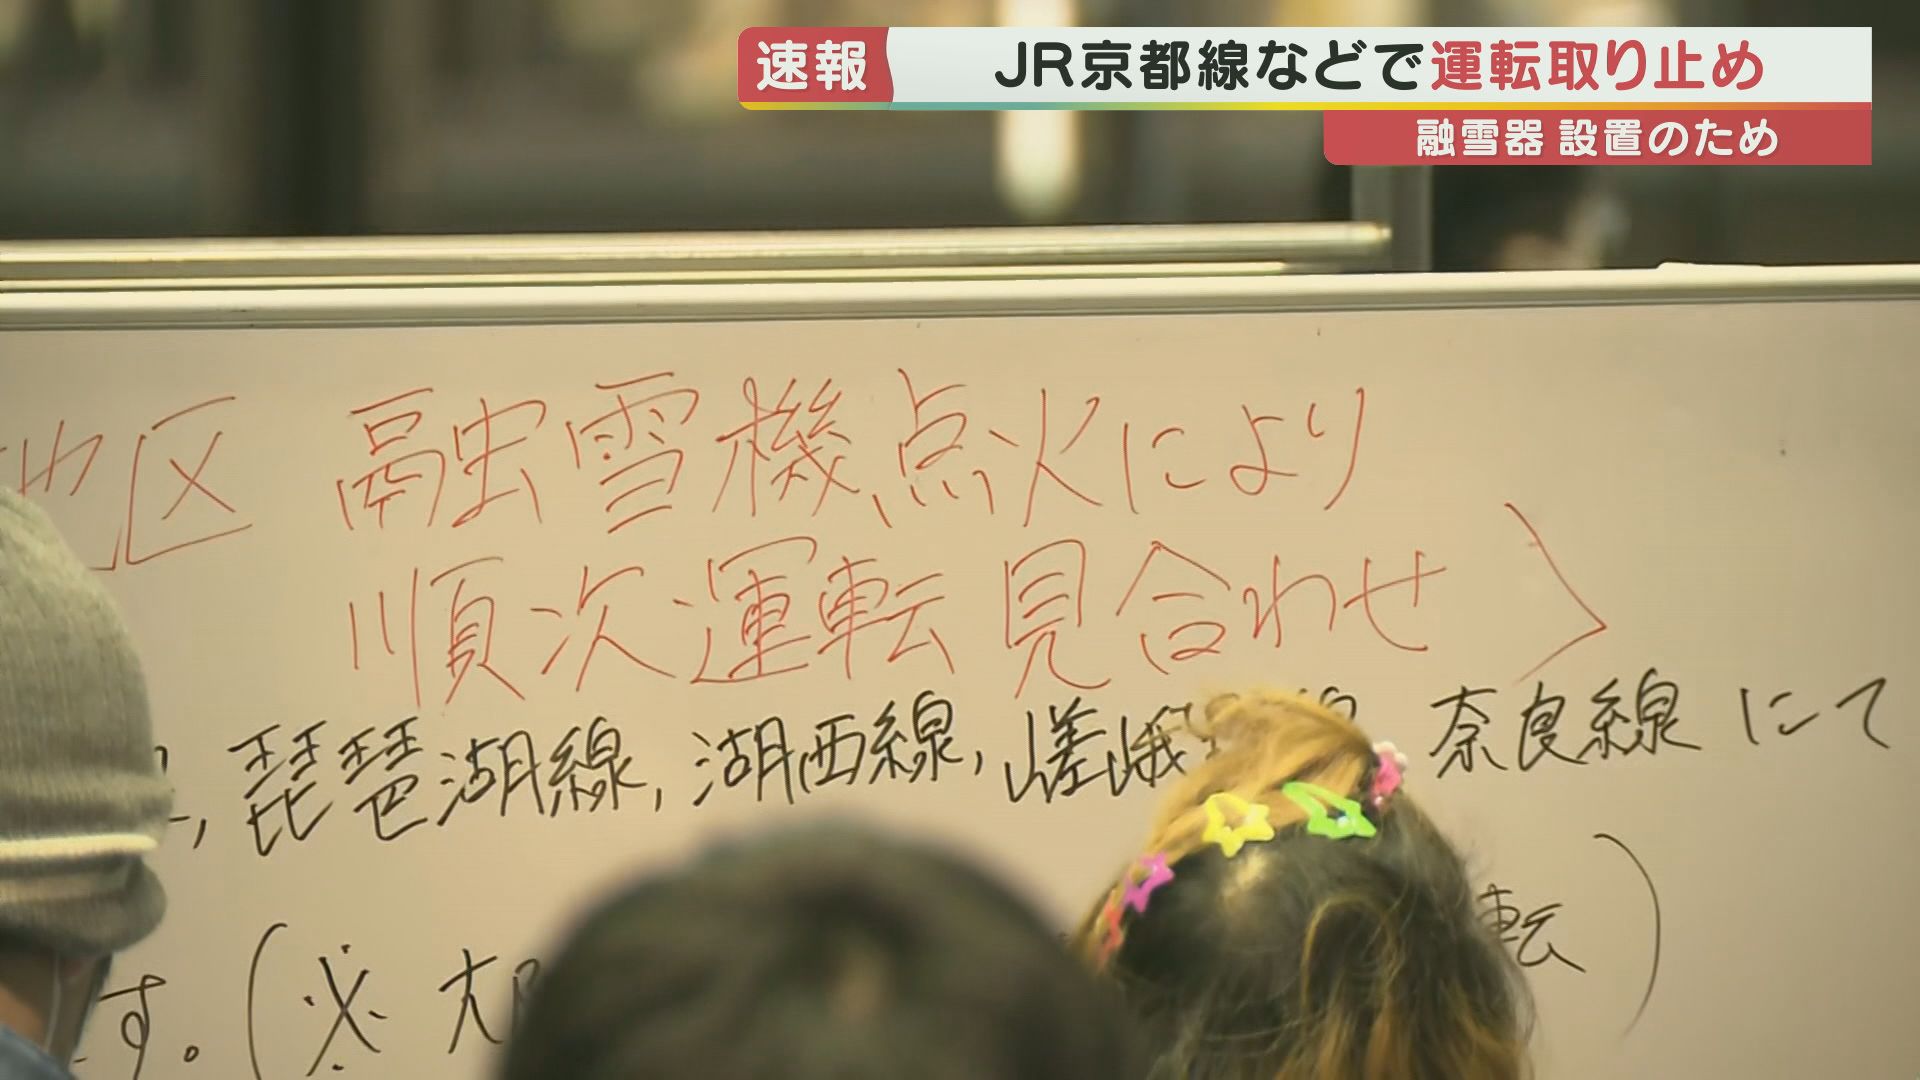 速報
JR京都線などで運転取り止め
融雪器 設置のため
地区 融雪機点火により
順次運転見合わせ
, 琵琶湖線, 湖西線, 嵯峨 奈良線にて
す。(※ 大 転)